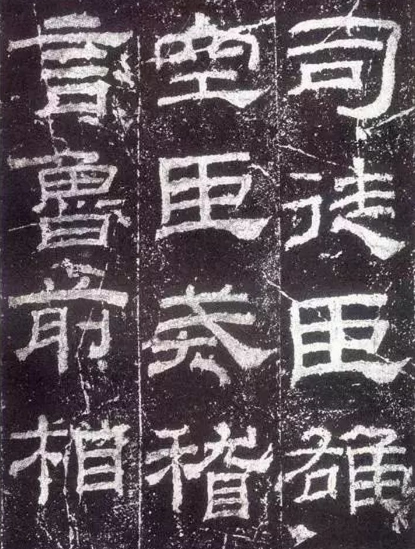 司徒臣雄
空臣戒稽
言魯前相